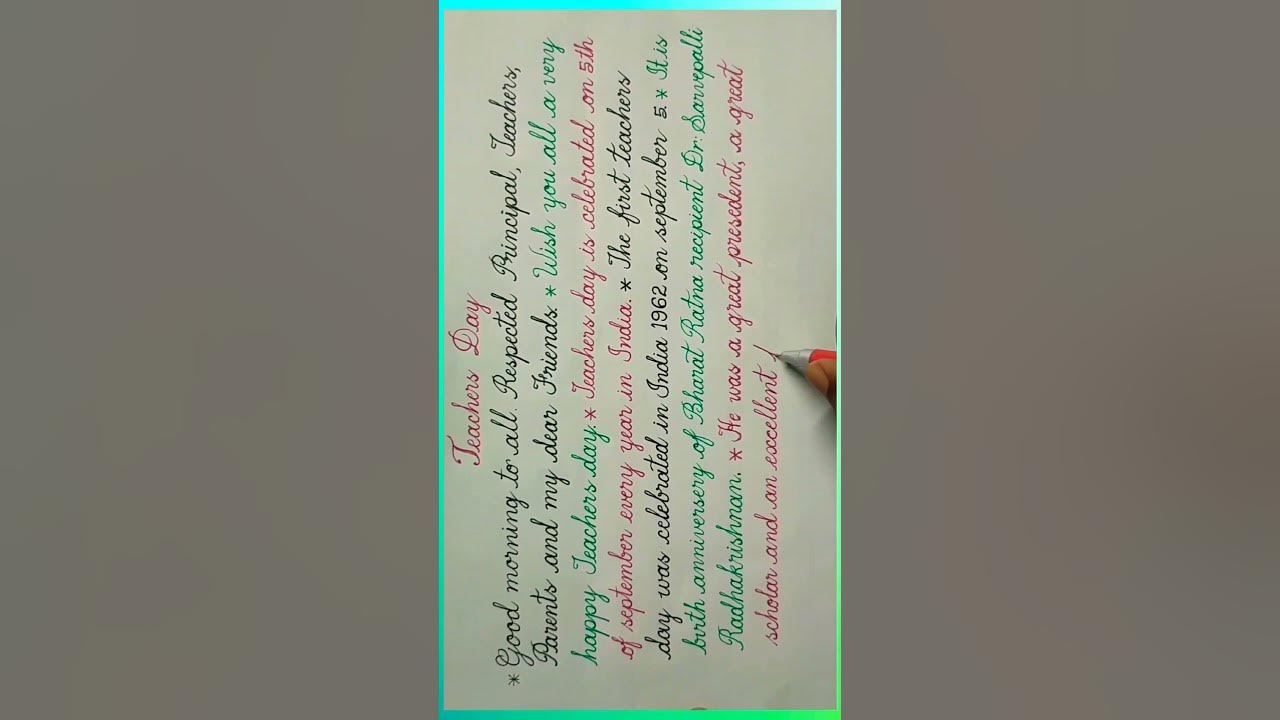 Teachers Day
* Good morning to all. Respected Principal, Teachers,
Parents and my dear Friends. * Wish you all a very
happy Teachers day. * Teachers day is celebrated on 5th
of september every year in India. * The first teachers
day was celebrated in India 1962 on september 5. * It is
birth anniversery of Bharat Ratna recipient Dr: Sarvepalli
Radhakrishnan. * He was a great presedent, a great
scholar and an excellent